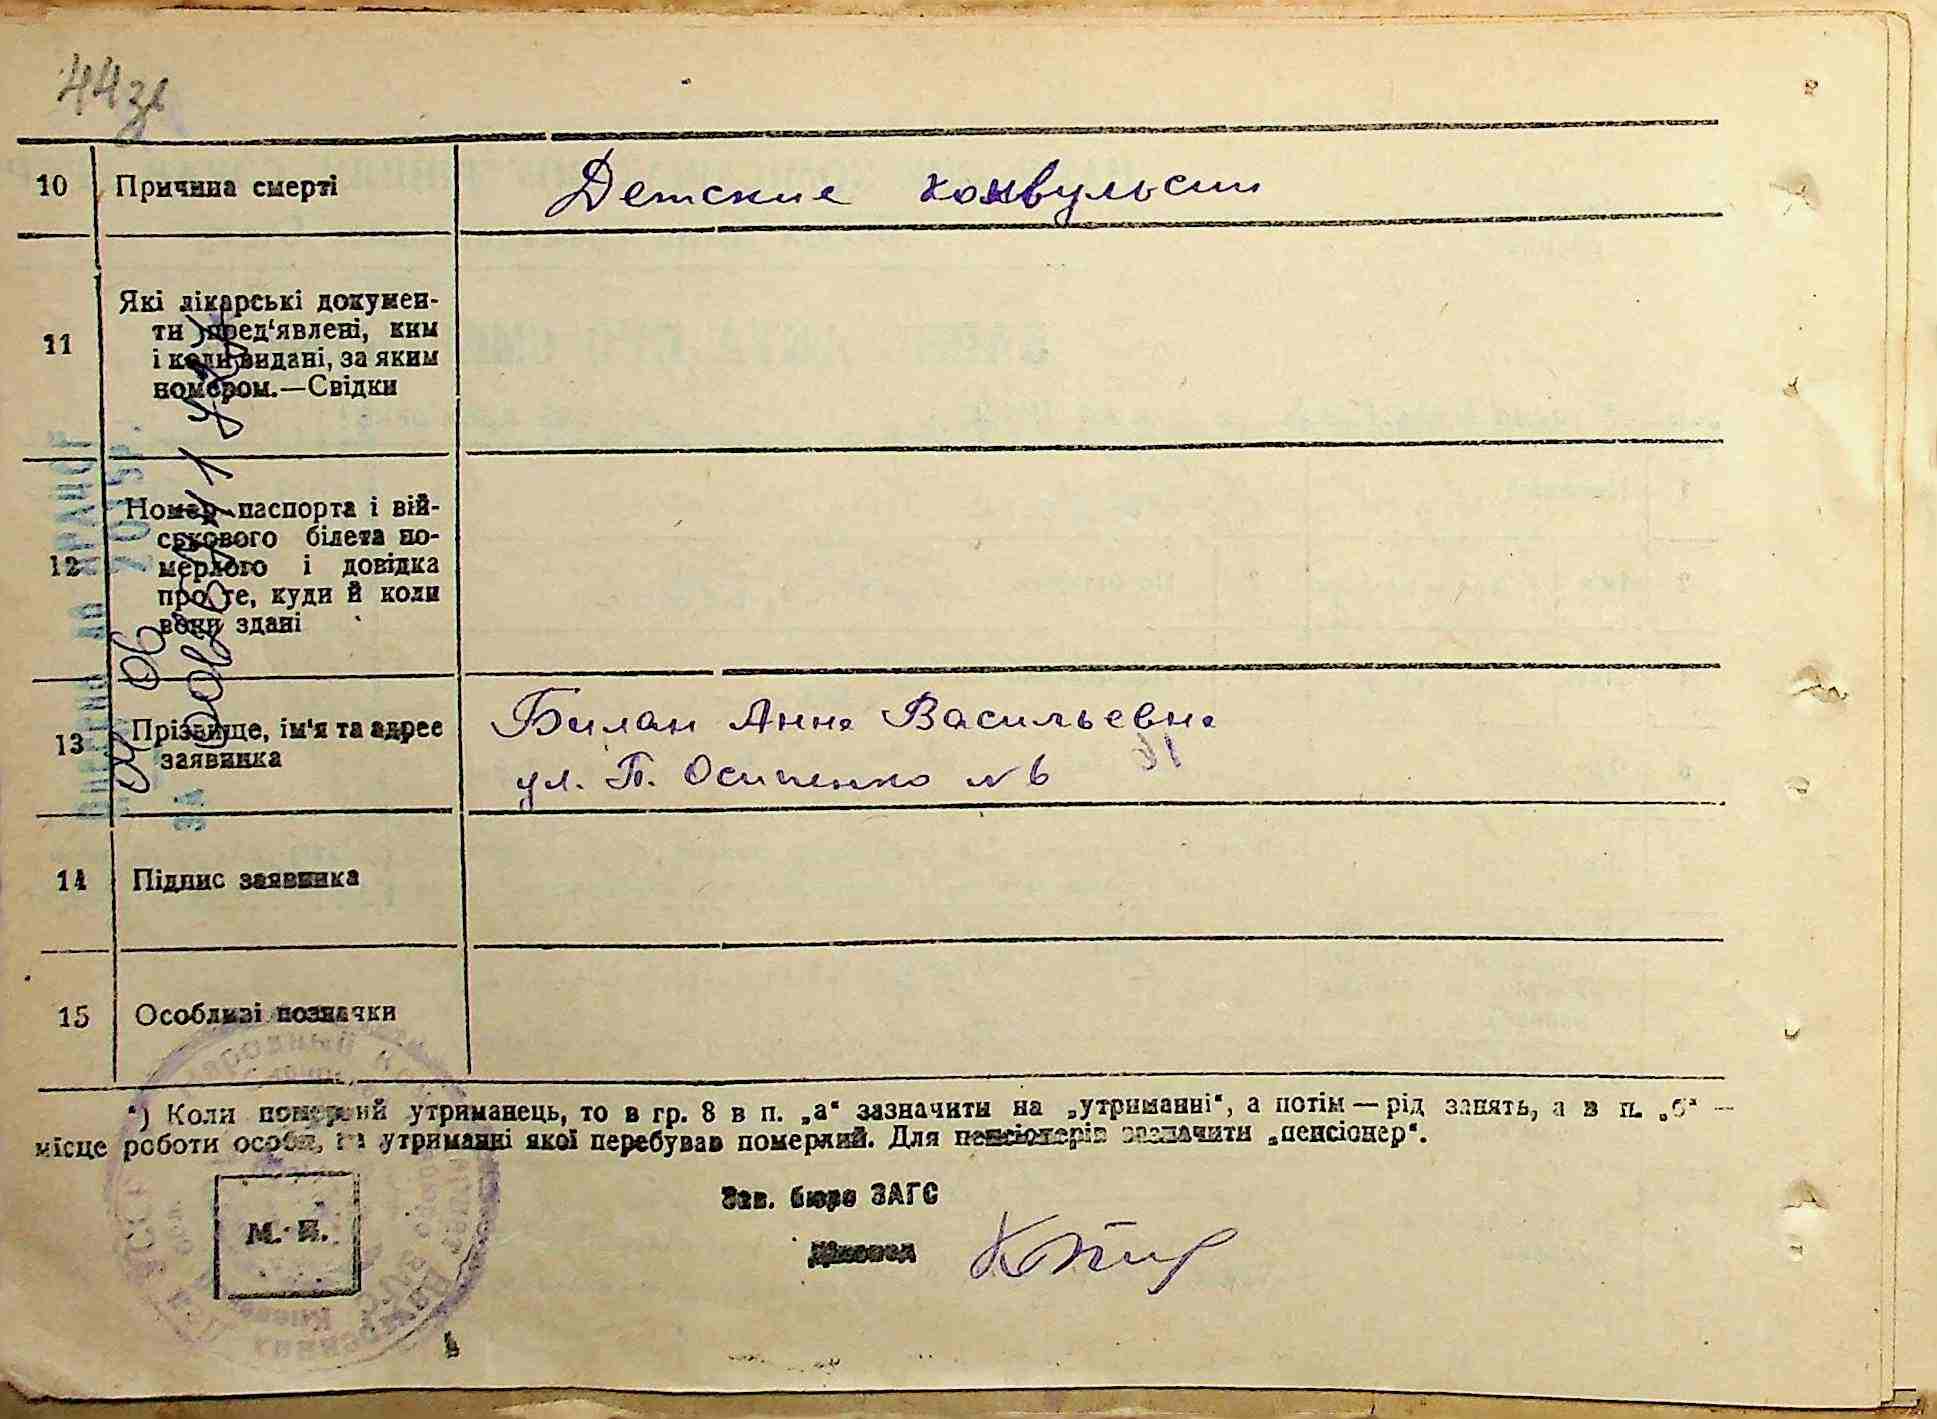 44зв
10 Причина смерті Детские конвульсии
11 Які лікарські докумен-
ти пред‘явлені, ким
і коли видані, за яким
номером.—Свідки
12 Номер паспорта і вій-
ськового білета по-
мерлого і довідка
про те, куди й коли
вони здані
13 Прізвище, ім‘я та адрес Билан Анна Васильевна
заявника ул. П. Осипенко № 6
14 Підпис заявника
15 Особливі позначки
*) Коли померлий утриманець, то в гр. 8 в п. „а“ зазначити на „утриманні“, а потім — рід занять, а в п. „б“ —
місце роботи особи, на утриманні якої перебував померлий. Для пенсіонерів зазначити „пенсіонер“.
Зав. бюро ЗАГС
М. П.
Діловод